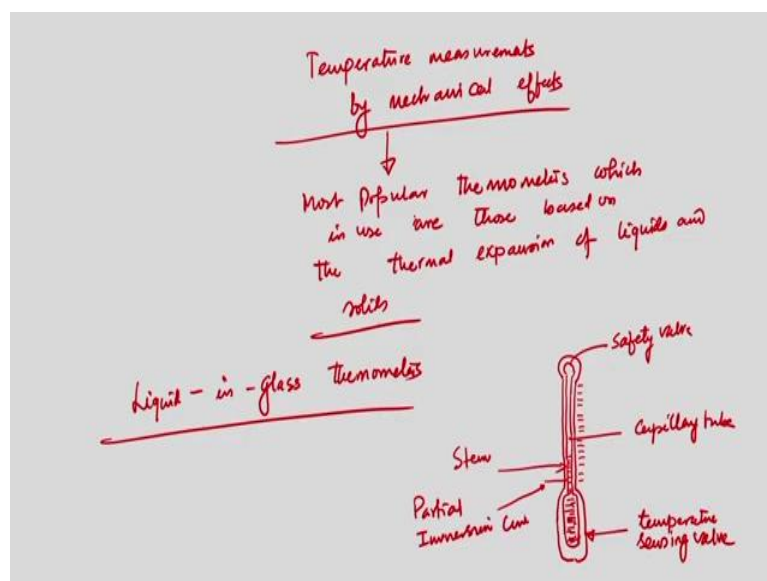 Temperature measuremats
by mechanical effects
Most Popular thermometers which
in use are those based on
the thermal expansion of liquids and
solids
Liquid - in - glass thermometers
safety valve
capillary tube
Stem
Partial
Immersion line
temperature
sensing valve